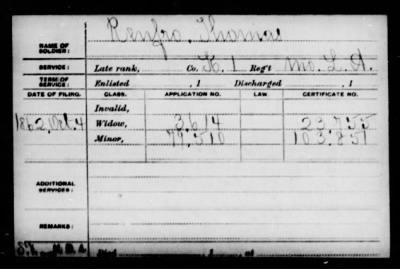 NAME OF SOLDIER: Renfro, Thomas
SERVICE: Late rank, Co. K, 1 Reg't Mo. L. A.
TERM OF SERVICE: Enlisted , 1 Discharged , 1
DATE OF FILING. CLASS. APPLICATION NO. LAW. CERTIFICATE NO.
Invalid,
1862, Oct. 4 Widow, 3614 23755
Minor, 77510 103851
ADDITIONAL SERVICES:
REMARKS: